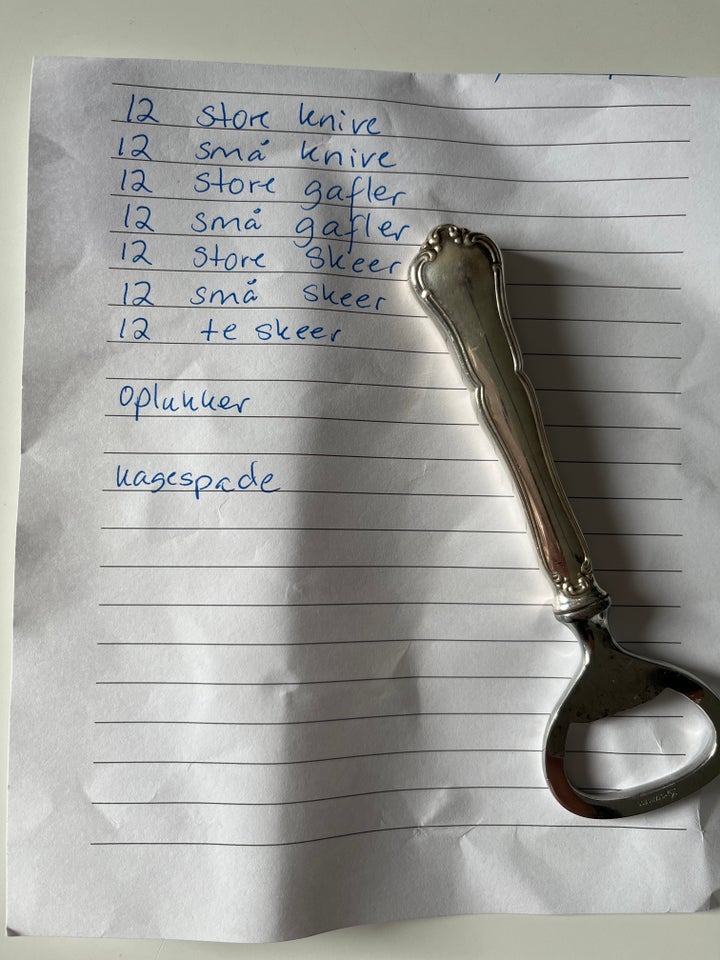 12 store knive
12 små knive
12 store gafler
12 små gafler
12 store skeer
12 små skeer
12 te skeer
oplukker
kagespade